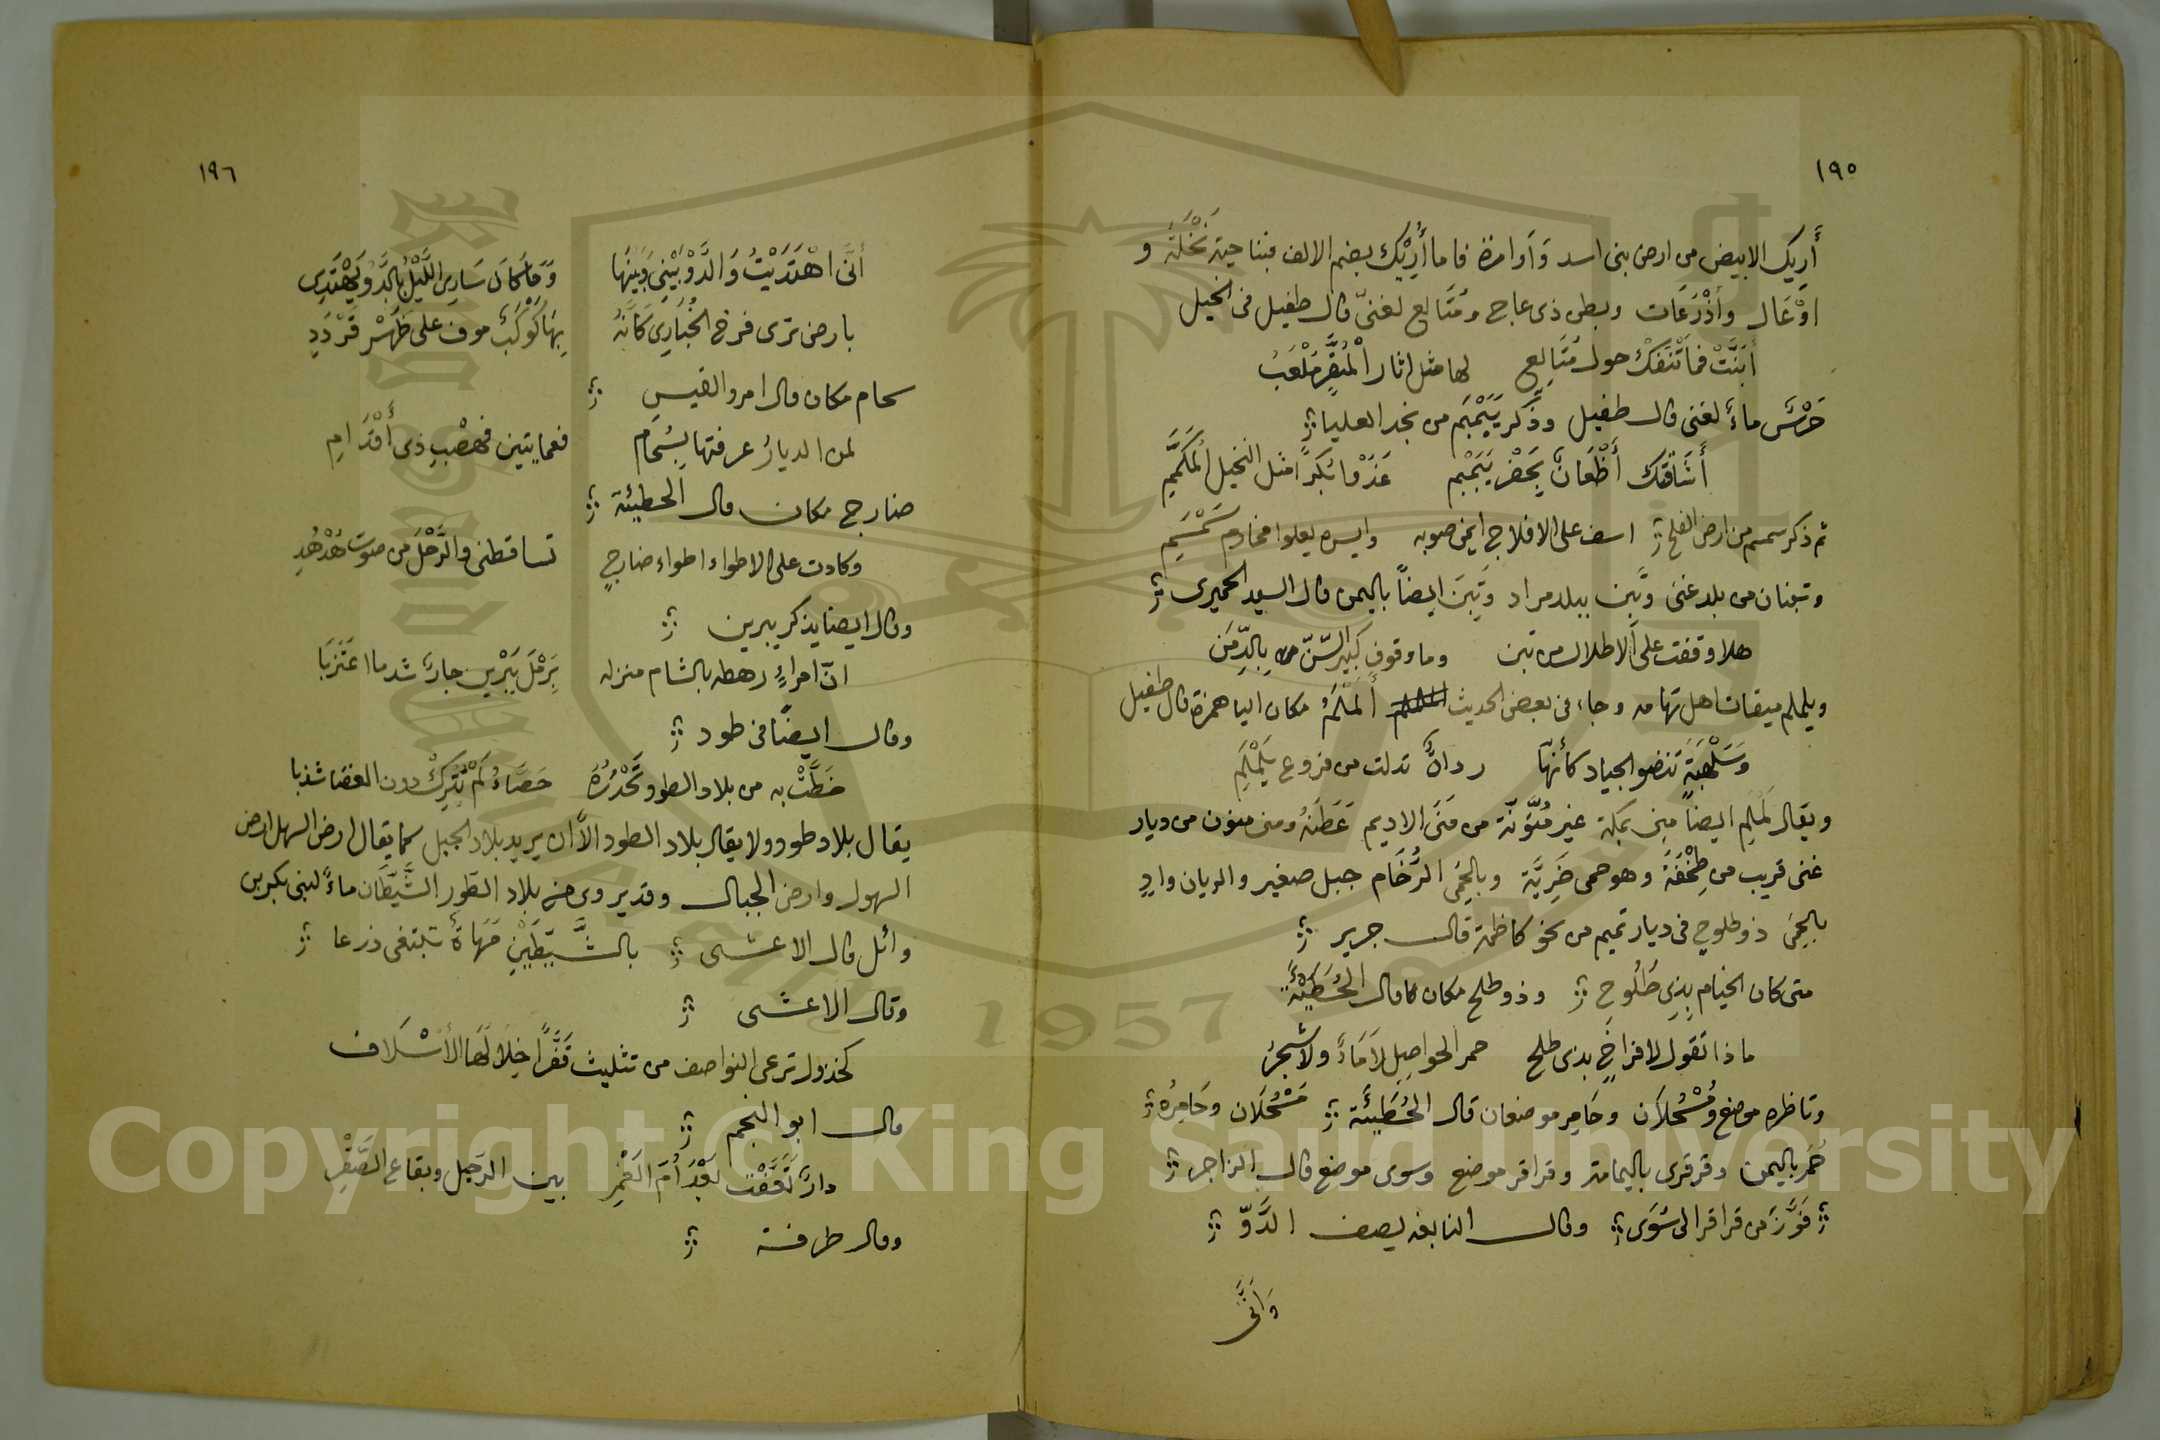 ١٩٥
أَرِيك الابيض من ارض بنى اسد وَاَوامرة فاما أُرَيْك بضم الالف فبناحية نَخْلَةَ و
اوْعَال وأَذْرَعَات وبطن ذى عاج ومُتَالِع لغنىّ قال طفيل فى الخيل
أَبَنَّتْ فمَا تَنْفَكُ حول مُتَالِعٍ لها مثل اثار الْمُبَقِّرِ مَلْعَبُ
حَرْسَ ماءَ لغنى قال طفيل وذكر يَبَمْبَم من نجد العليا
أَشَاقَتْك أَظْعَانٌ بِجَفْرِ يَبَمْبَمِ غَدَوْا بُكَرًا مثل النخيل الْمُكَمَّمِ
ثم ذكر سمسم من ارض الفلج اسف على الافلاج ايمن صوبه وايسره يعلوا مخارم سَمْسَمِ
وتبنان من بلد غنى وَتَبِن ببلد مراد وَتِبَن ايضاً باليمن قال السيد الحميرى
هلا وقفت على الاطلال من تبن وما وقوف كَبِيرِ السِّنّ بِالدِّمَن
ويلملم ميقات اهل تهامه وجاء فى بعض الحديث أَلَمْلَمُ مكان اليا همزة قال طفيل
وَسَلْهَبَةٍ تنضو الجياد كأنها رداةٌ تدلت من فروع يَلَمْلَمِ
ويقال لَمْلَمِ ايضاً مِنى بمكة غير مُنَوّنَة من مَنَى الاديم عَطَنَهُ ومنى منون من ديار
غنى قريب من طِخْفَةَ وهو حمى ضَرِيَّة وبالحِمَى الرُّخَام جبل صغير والريان وادٍ
بالحِمَى ذو طلوحٍ فى ديار تميم من نحو كاظمة قال جرير
متى كان الخيام بِذِى طُلُوحِ وذو طلح مكان كما قال الحُطَيْئَةُ
ماذا تقول لافراخٍ بذى طلح حمر الحواصِلِ لاَ مَاءً ولا شَجَرُ
وناظره موضع ومُسْحُلاَن وحَامِر موضعان قال الحُطَيْئَة مُسْحُلَان وحَامِرُه
حُمَر باليمن وقرقرى باليمامة وقراقر موضع وسوى موضع قال الراجز
فَوَّزَ من قراقر الى سُوَى وقال النابغه يصف الدَّوّ
وَأَنَّى
١٩٦
أَنَّى اهْتَدَيْتُ وَالدَّوُّ بَيْنِى وَبَينَهَا وَمَا كَانَ سَارِى اللَّيْلِ بِالدَّوِّ يَهْتَدِى
بارض ترى فرخ الحُبَارِى كَانَّهُ بِهَا كَوْكَبٌ موف على ظَهْرِ قَرْدَدِ
سحام مكان قال امرو القيس
لمن الديارُ عرفتها بِسُحَام فعمايتين فهضْبِ ذى أَقْدَامِ
ضارج مكان قال الحطيئة
وكادت على الاطواء اطواء ضارجٍ تساقطنى والرَّحْلَ من صوت هُدْهُدِ
وقال ايضا يذكر يبرين
انّ امراءً رهطه بالشام منزله بِرَمْلِ يَبْرِين جارٌ شد ما اغتَرَبَا
وقال ايضًا فى طود
حَطَّتْ به من بلاد الطود تَحْدُرُهُ حَصَّاءُ لَمْ تَتَّرِكْ دون العَصَا شذبا
يقال بلاد طود ولا يقال بلاد الطود الاّ ان يريد بلاد الجبل كما يقال ارض السهل ارض
السهول وارض الجبال وقد يروى من بلاد الطور الشَّيِّطَان ماءً لبنى بكر بن
وائل قال الاعشى بالشَّيِّطَيْنِ مَهَاةٌ تبتغى ذرعا
وقال الاعشى
كخذول ترعى النواصف من تثليث قَفْرًا خِلَا لَهَا الأَسْلَاف
قال ابو النجم
دارٌ تَعَفَّت بَعْدَ أُمّ الغَمْرِ بين الرجيل وبقاع الصَّقْرِ
وقال طرفة
Copyright © King Saud University
1957